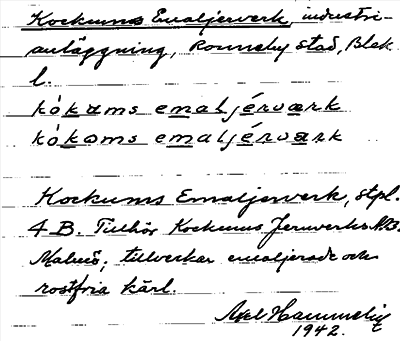 Kockums Emaljerverk, industri-
anläggning, Ronneby stad, Blek.
l.
kókums emaljérværk
kókoms emaljérværk
Kockums Emaljerverk, stpl.
4 B. Tillhör Kockums Jernverks AB.
Malmö; tillverkar emaljerade och
rostfria kärl.
Axel Hammelig
1942.